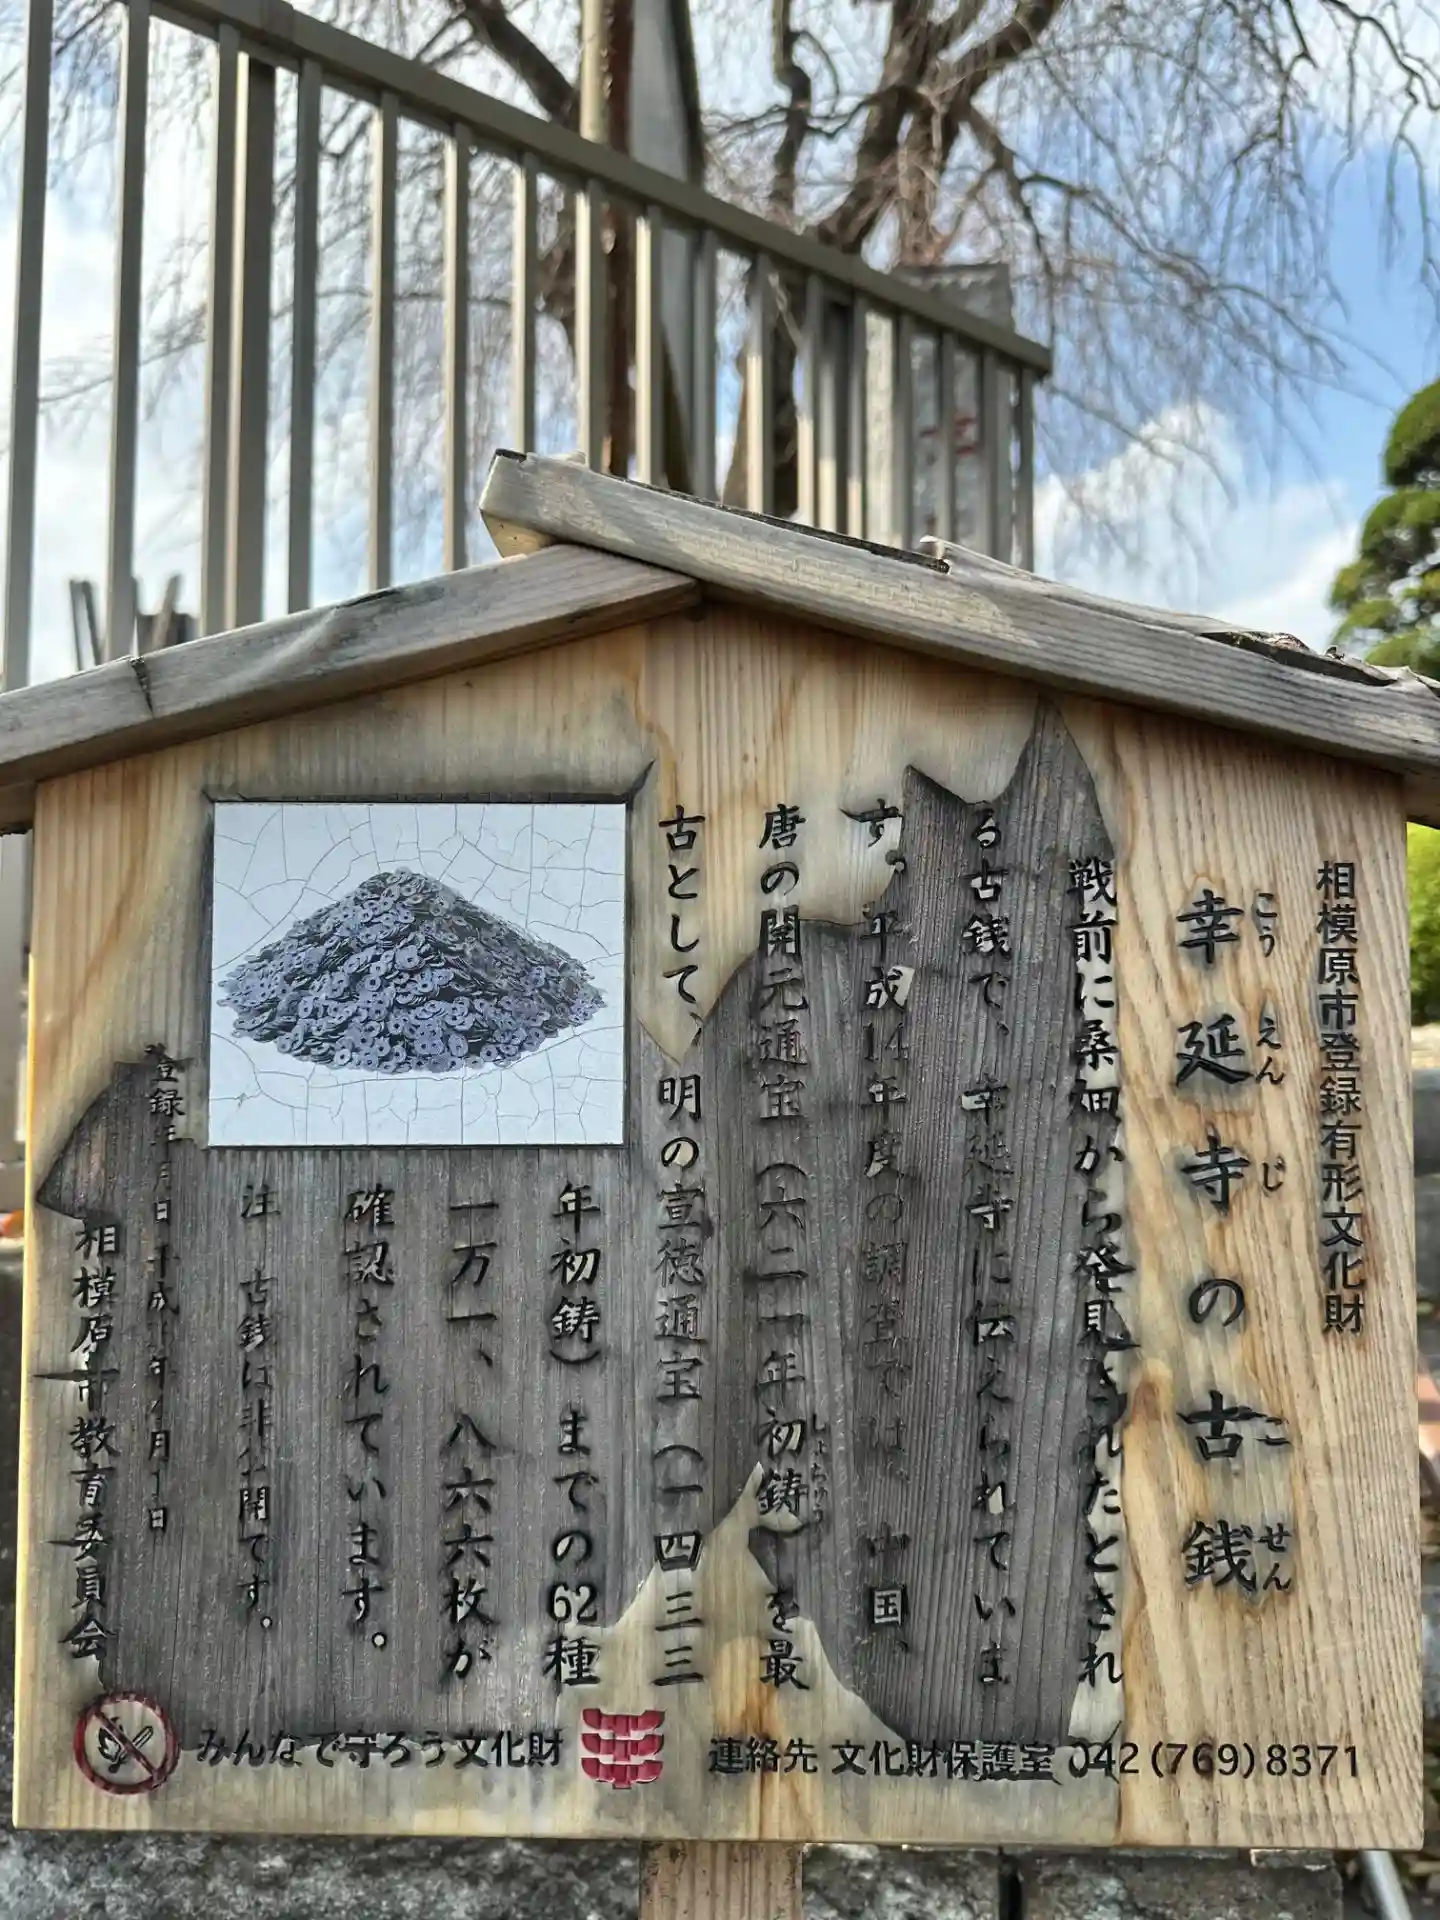 相模原市登録有形文化財
こう えん じ こ せん
幸延寺の古銭
戦前に桑畑から発見されたとされ
る古銭で、幸延寺に伝えられていま
す。平成14年度の調査では、中国、
唐の開元通宝（六二一年初鋳）を最
しょちゅう
古として、明の宣徳通宝（一四三三
年初鋳）までの62種
一万一、八六六枚が
確認されています。
注 古銭は非公開です。
登録年月日 平成 年 月1日
相模原市教育委員会
みんなで守ろう文化財
連絡先 文化財保護室 042(769)8371